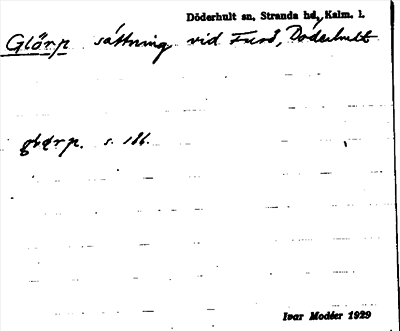 Döderhult sn, Stranda hd, Kalm. l.
Glörp sättning vid Figeholm, Döderhult
glörp. s. 186.
Ivar Modéer 1929